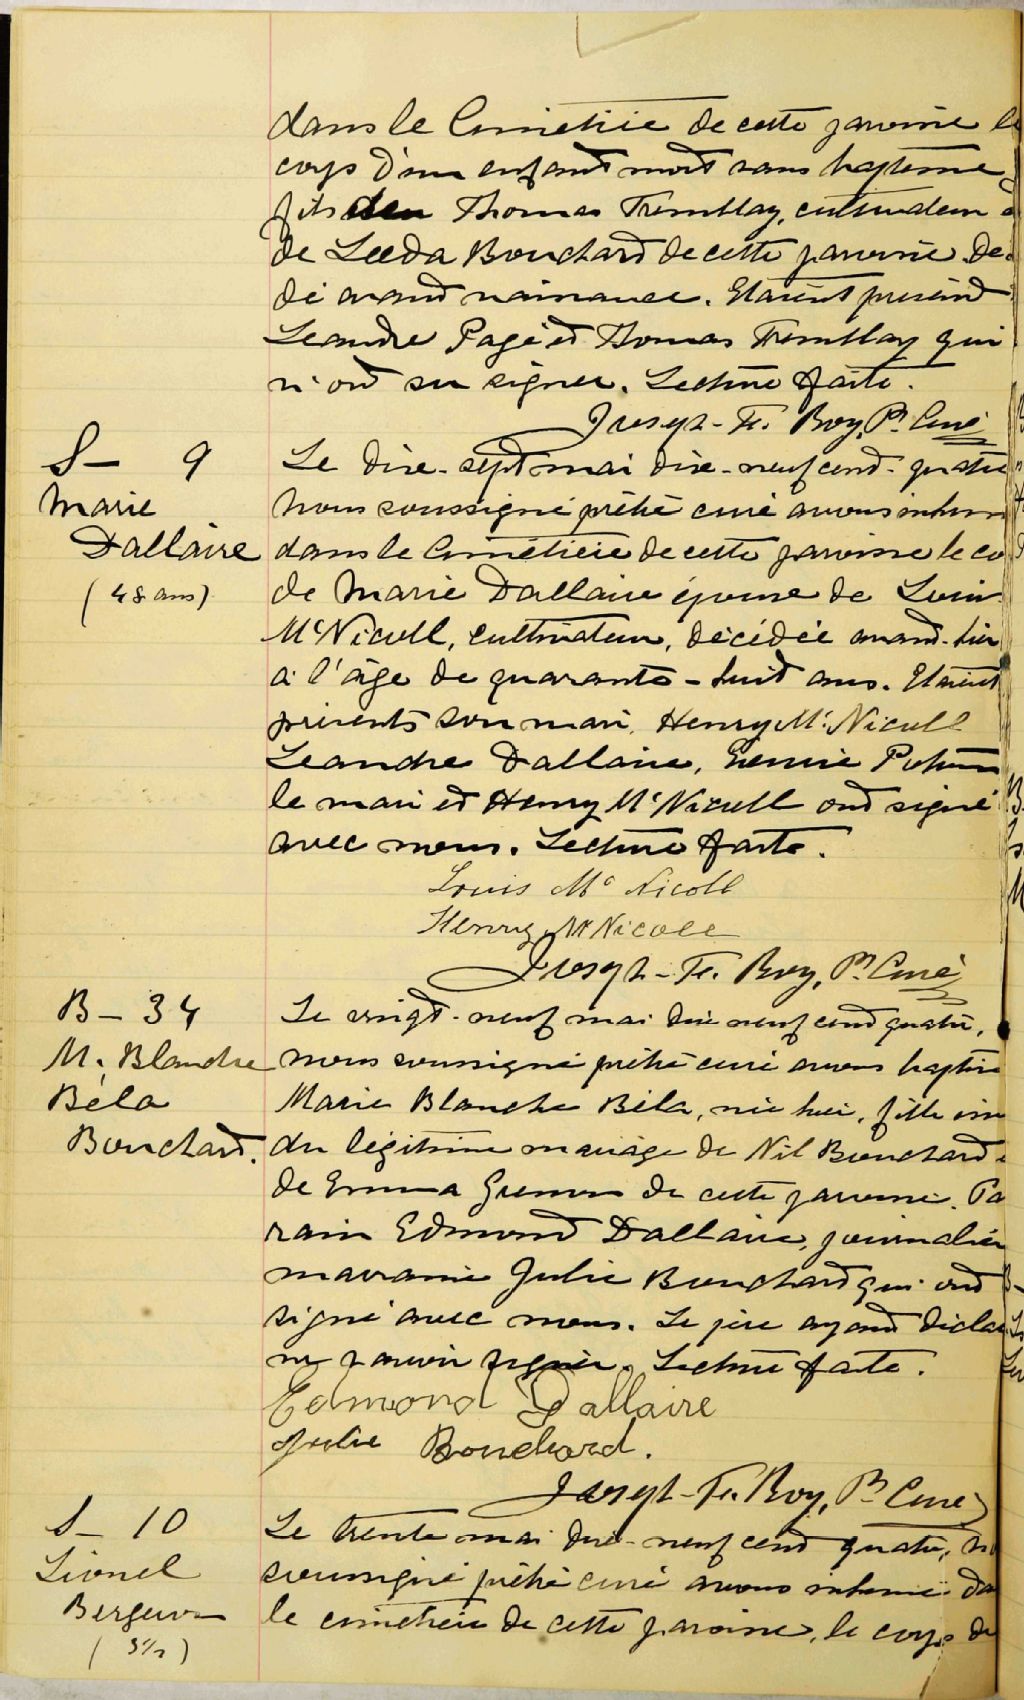 dans le Cimetière de cette paroisse le
corps d'un enfant mort sans baptême,
fils de Thomas Tremblay, cultivateur
de Leeda Bouchard de cette paroisse. Dé
dé avant naissance. Etaient présent
Leandre Pagé et Thomas Tremblay qui
n'ont su signer. Lecture faite.
Joseph-Fr. Roy, Ptre Curé
S - 9
Marie
Dallaire
(48 ans)
Le dix-sept mai dix-neuf cent-quatre
nous soussigné prêtre curé avons inhum
dans le Cimetière de cette paroisse le co
de Marie Dallaire épouse de Louis
McNicoll, cultivateur, décédée avant-hier
à l'âge de quarante-huit ans. Etaient
présents son mari, Henry McNicoll
Leandre Dallaire,
le mari et Henry McNicoll ont signé
avec nous. Lecture faite.
Louis Mc Nicoll
Henry McNicoll
Joseph-Fr. Roy, Ptre Curé
B - 34
M. Blanche
Béla
Bouchard.
Le vingt-neuf mai dix neuf cent quatre,
nous soussigné prêtre curé avons baptisé
Marie Blanche Béla, née hier, fille
du légitime mariage de Nil Bouchard
de Emma Gremon de cette paroisse. Pa
rain Edmond Dallaire, journalier
marraine Julie Bouchard qui ont
signé avec nous. Le père ayant déclar
ne savoir signer. Lecture faite.
Edmond Dallaire
Julie Bouchard.
Joseph-Fr. Roy, Ptre Curé
S - 10
Lionel
Bergeron
Le trente mai dix-neuf cent quatre, no
soussigné prêtre curé avons inhumé da
le cimetière de cette paroisse, le corps de